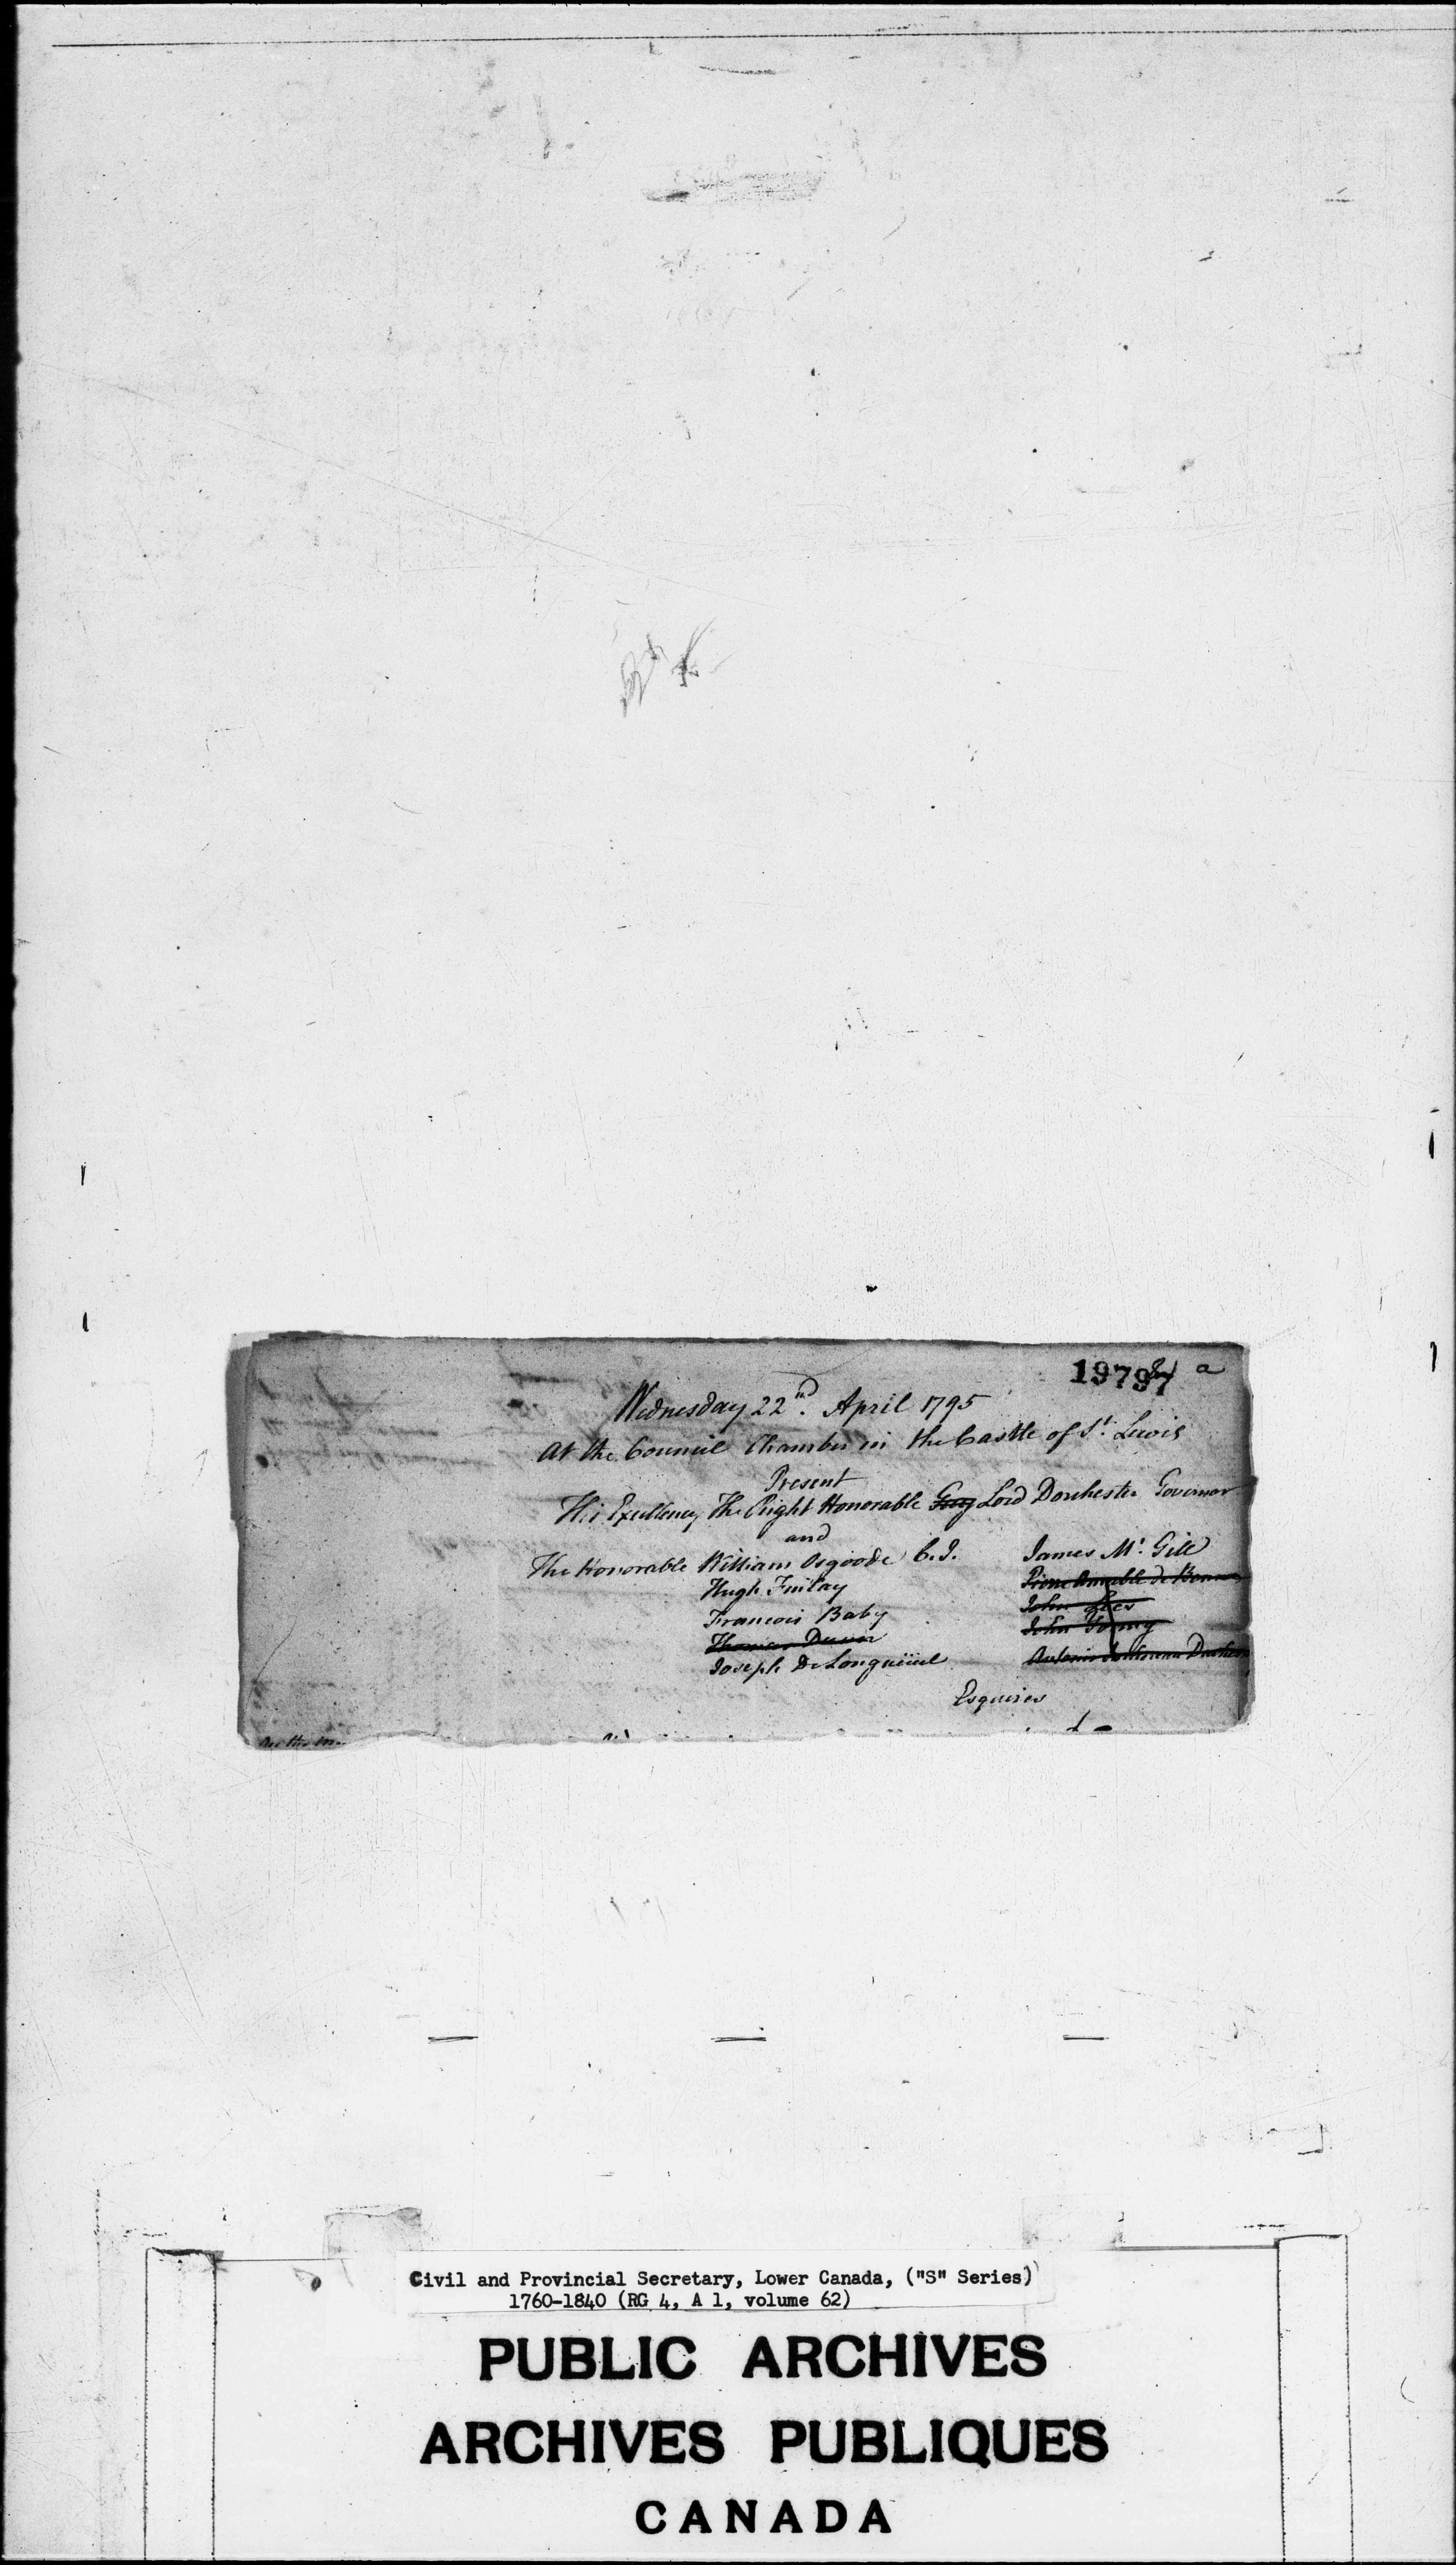 19797 a
Wednesday 22nd. April 1795
At the Council Chamber in the Castle of St. Lewis
Present
His Excellency The Right Honorable Guy Lord Dorchester Governor
and
The Honorable William Osgoode C.J.
Hugh Finlay
Francois Baby
Thomas Dunn
Joseph De Longueüil
James Mc. Gill
Pierre Amable de Bonne
John Lees
John Young
Antoine Juchereau Duchesn
Esquires
Civil and Provincial Secretary, Lower Canada, ("S" Series)
1760-1840 (RG 4, A 1, volume 62)
PUBLIC ARCHIVES
ARCHIVES PUBLIQUES
CANADA